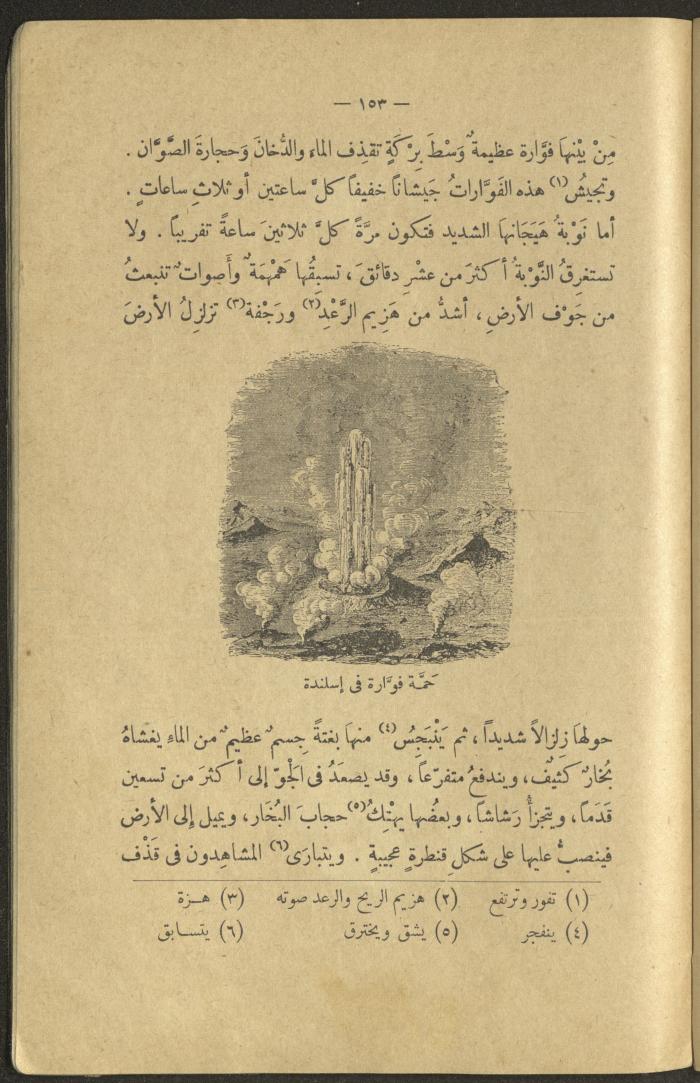 — ١٥٣ —
مِنْ بيْنِهَا فوَّارة عظيمةٌ وَسْطَ بِرْكَةٍ تقذِف الماءَ والدُّخانَ وَحجارةَ الصَّوَّان .
وتجيشُ (١) هذه الفَوَّاراتُ جَيشاناً خفيفاً كلَّ ساعتين أو ثلاثِ ساعاتٍ .
أما نَوْبةُ هَيَجَانِها الشديد فتكون مرَّةً كلَّ ثلاثينَ ساعةً تقريباً . ولا
تستغرِقُ النَّوْبةُ أكثرَ من عشْرِ دقائقَ ، تسبقُها هَمْهَمَةٌ وأَصواتٌ تنبعثُ
من جَوْف الأرضِ ، أشدُّ من هَزِيم الرَّعْدِ (٢) ورَجْفة (٣) تزلزِلُ الأرضَ
حَمَّة فوَّارة فى إسلندة
حولهَا زِلزالاً شديداً ، ثم يَنْبَجِسُ (٤) منهَا بغتةً جِسمٌ عظيمٌ من الماءِ يغشاهُ
بُخارٌ كثيفٌ ، ويندفعُ متفرّعاً ، وقد يصعَدُ فى الجَوّ إلى أكثرَ من تسعين
قَدَماً ، ويتجزأُ رَشاشاً ، وبعضُها يهْتِكُ (٥) حجابَ البُخَار ، ويميل إلى الأرض
فينصبُّ عليها على شكلِ قنطرةٍ عجيبةٍ . ويتبارَى (٦) المشاهِدون فى قَذْف
(١) تفور وترتفع (٢) هزيم الريح والرعد صوته (٣) هـزة
(٤) ينفجر (٥) يشق ويخترق (٦) يتسابق